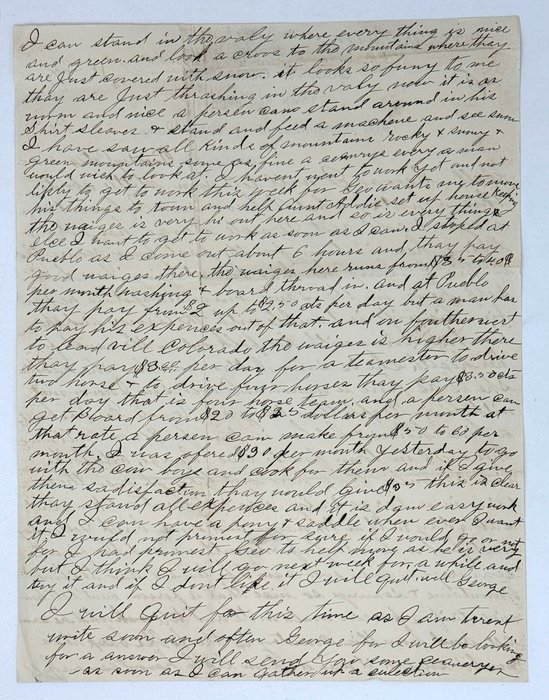 I can stand in the valy where every thing is nice
and green and look a cross to the mountains where thay
are Just covered with snow. it looks so funy to me
thay are Just thrashing in the valy now it is as
worm and nice a persen can stand around in his
Shirt sleaves & stand and feed a machene and see snow
I have saw all kinds of mountains rocky & snowy &
green mountains some as fine a cenerys every a man
would wish to look at. I havent went to work yet and not
likely to get to work this week for Geo wants me to move
his things to town and help Aunt Addie set up house keeping
the waiges is very hi out here and so is every thing
else I want to get to work as soon as I can. I stoped at
Pueblo as I come out about 6 hours and thay pay
good waiges there. the waiges here runs from $35 to 40
per month washing & board throad in. and at Pueblo
thay pay from $2 up to $2.50 cts per day but a man has
to pay his expences out of that. and on fourther west
to Lead vill Colorado the waiges is higher there
thay pay $3.00 per day for a teamester to drive
two horse & to drive four horses thay pay $3.50 cts
per day that is four horse team. and a persen can
get Board from $20 to $25 dollars per month at
that rate a persen can make from $50 to 60 per
month. I was offered $30 per month yesterday to go
with the cow boys and cook for them and if I give
them sadisfaction thay would Give $35 this is clear
thay stand all expences and it is easy work
and I can have a pony & saddle when ever I want
it I would not promest for sure if I would go or not
for I had promest Geo to help move as he is very
but I think I will go next week for a while and
try it and if I dont like it I will quit. well George
I will Quit for this time as I am
write soon and often George for I will be looking
for a answer I will send you some
as soon as I can gather up a